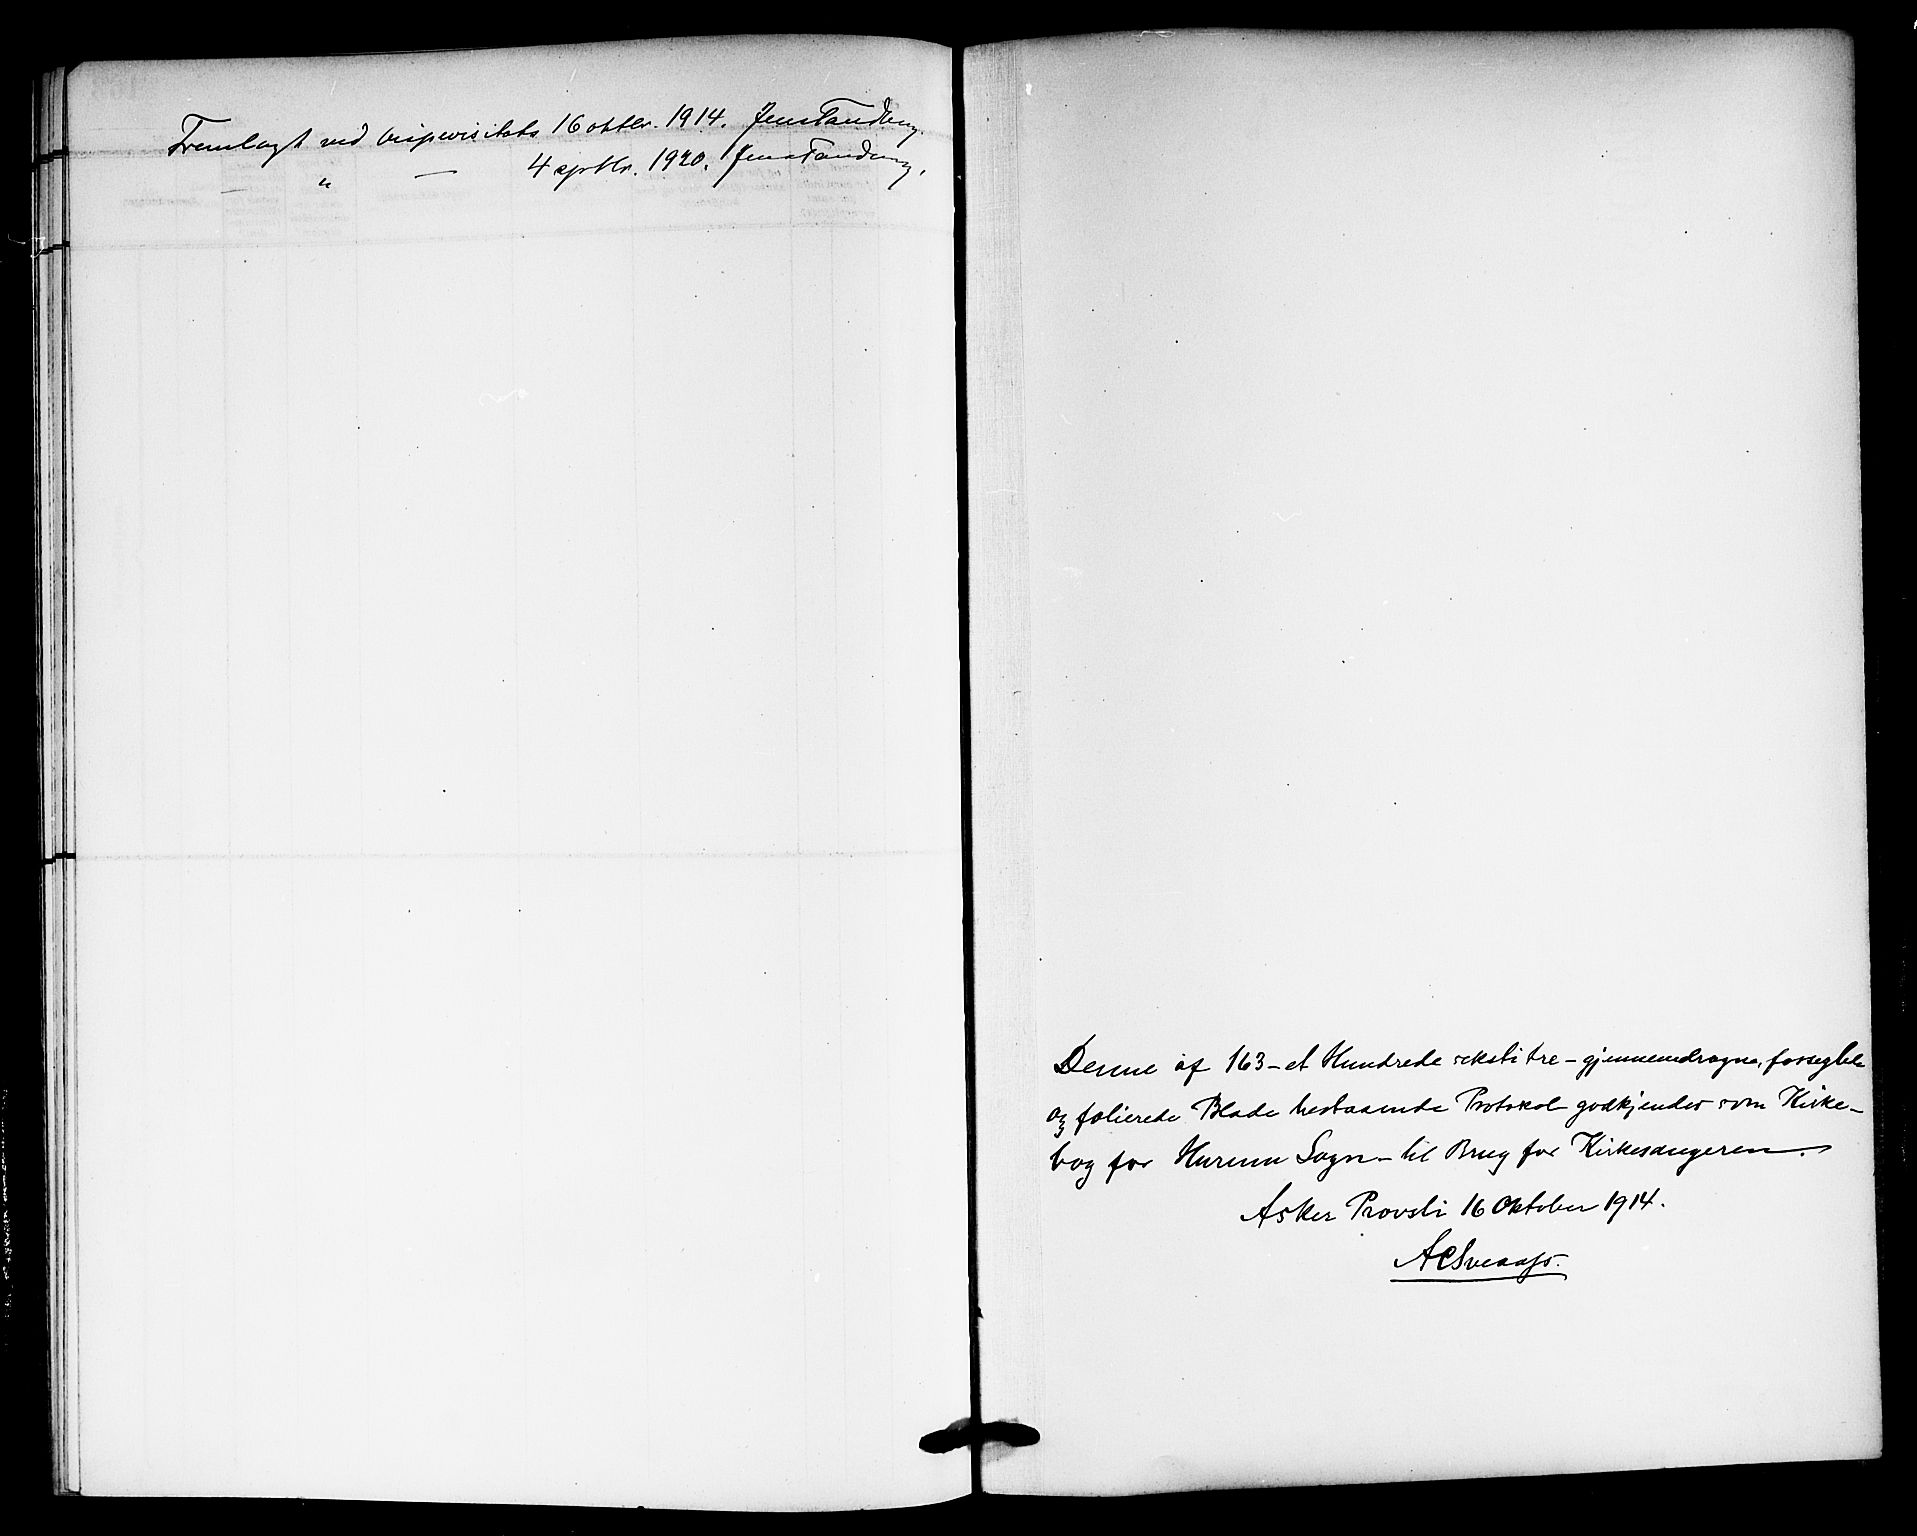 Fremlagt ved bispevisitats 16 oktbr. 1914. Jens Tandberg.
— " — 4 septbr. 1920. Jens Tandberg.
Denne af 163 – et Hundrede seksti tre – gjennemdragne, forseglede
og folierede Blade bestaaende Protokol godkjendes som Kirke-
bog for Hurum Sogn – til Brug for Kirkesangeren.
Asker Provsti 16 Oktober 1914.
A C Sveaass.